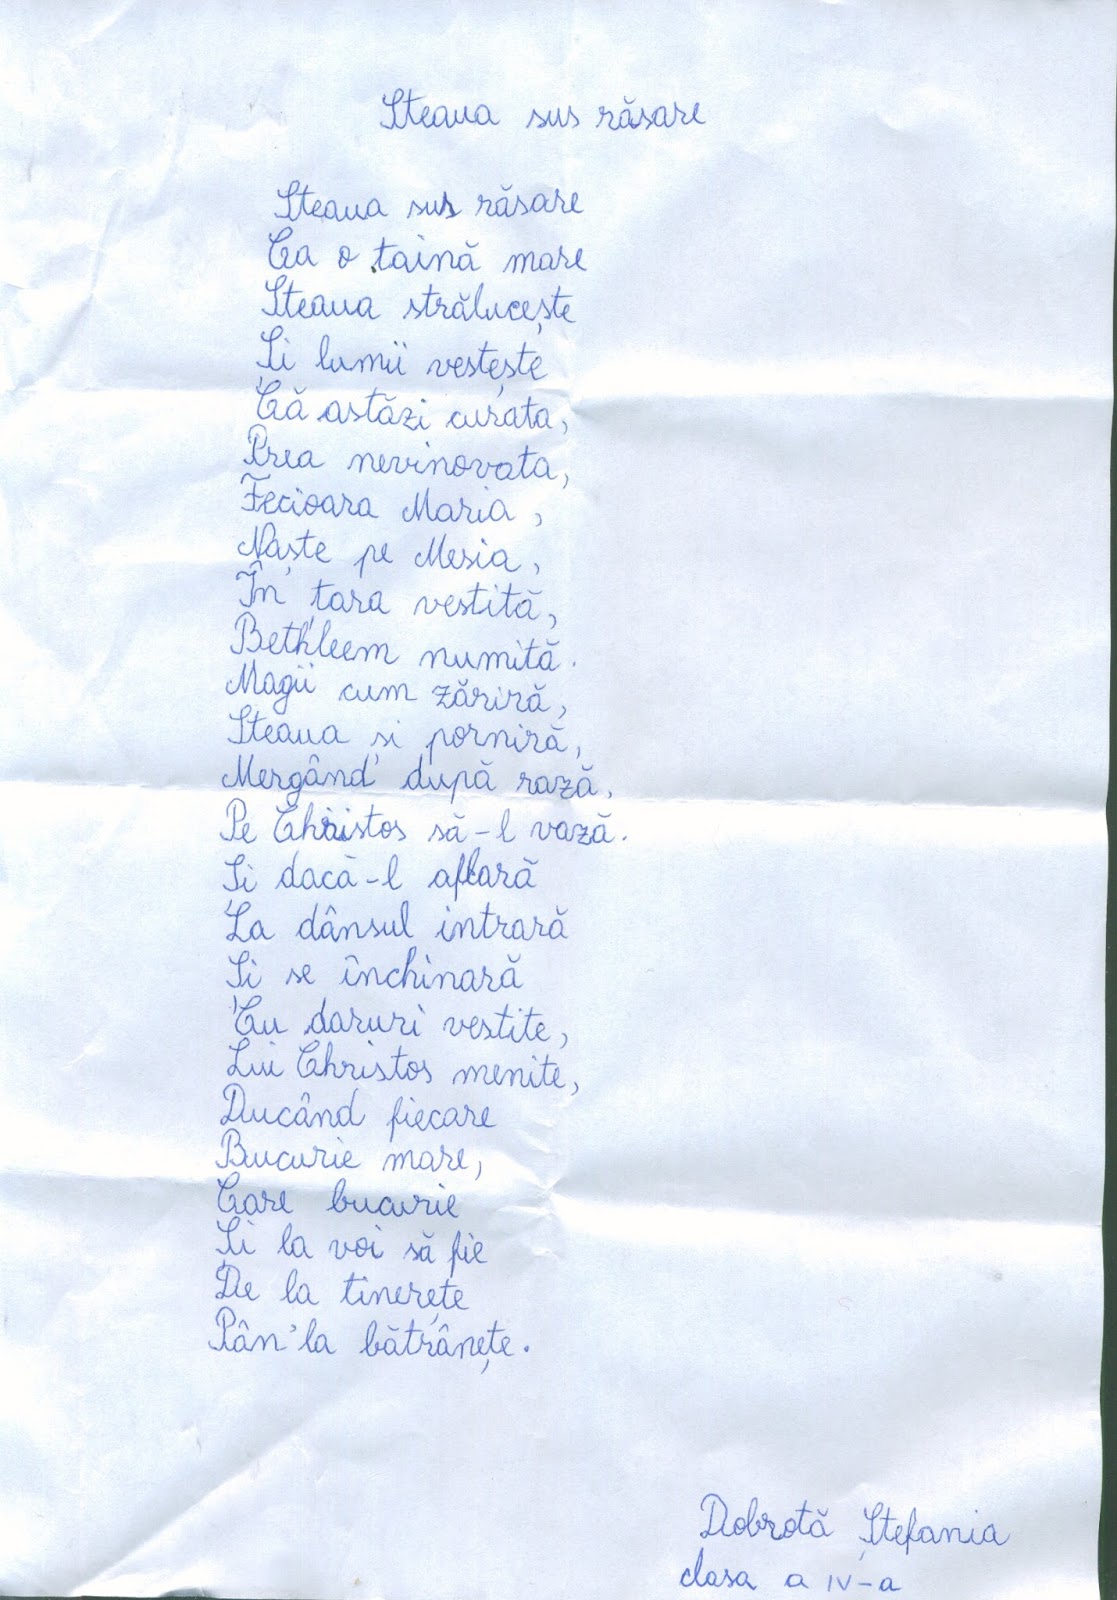 Steaua sus răsare
Steaua sus răsare
Ca o taină mare
Steaua strălucește
Și lumii vestește
Că astăzi curata,
Prea nevinovata,
Fecioara Maria,
Naște pe Mesia,
În țara vestită,
Bethleem numită.
Magii cum zăriră,
Steaua și porniră,
Mergând după rază,
Pe Christos să-l vază.
Și dacă-l aflară
La dânsul intrară
Și se închinară
Cu daruri vestite,
Lui Christos menite,
Ducând fiecare
Bucurie mare,
Care bucurie
Și la voi să fie
De la tinerețe
Pân'la bătrânețe.
Dobrotă Ștefania
clasa a IV-a